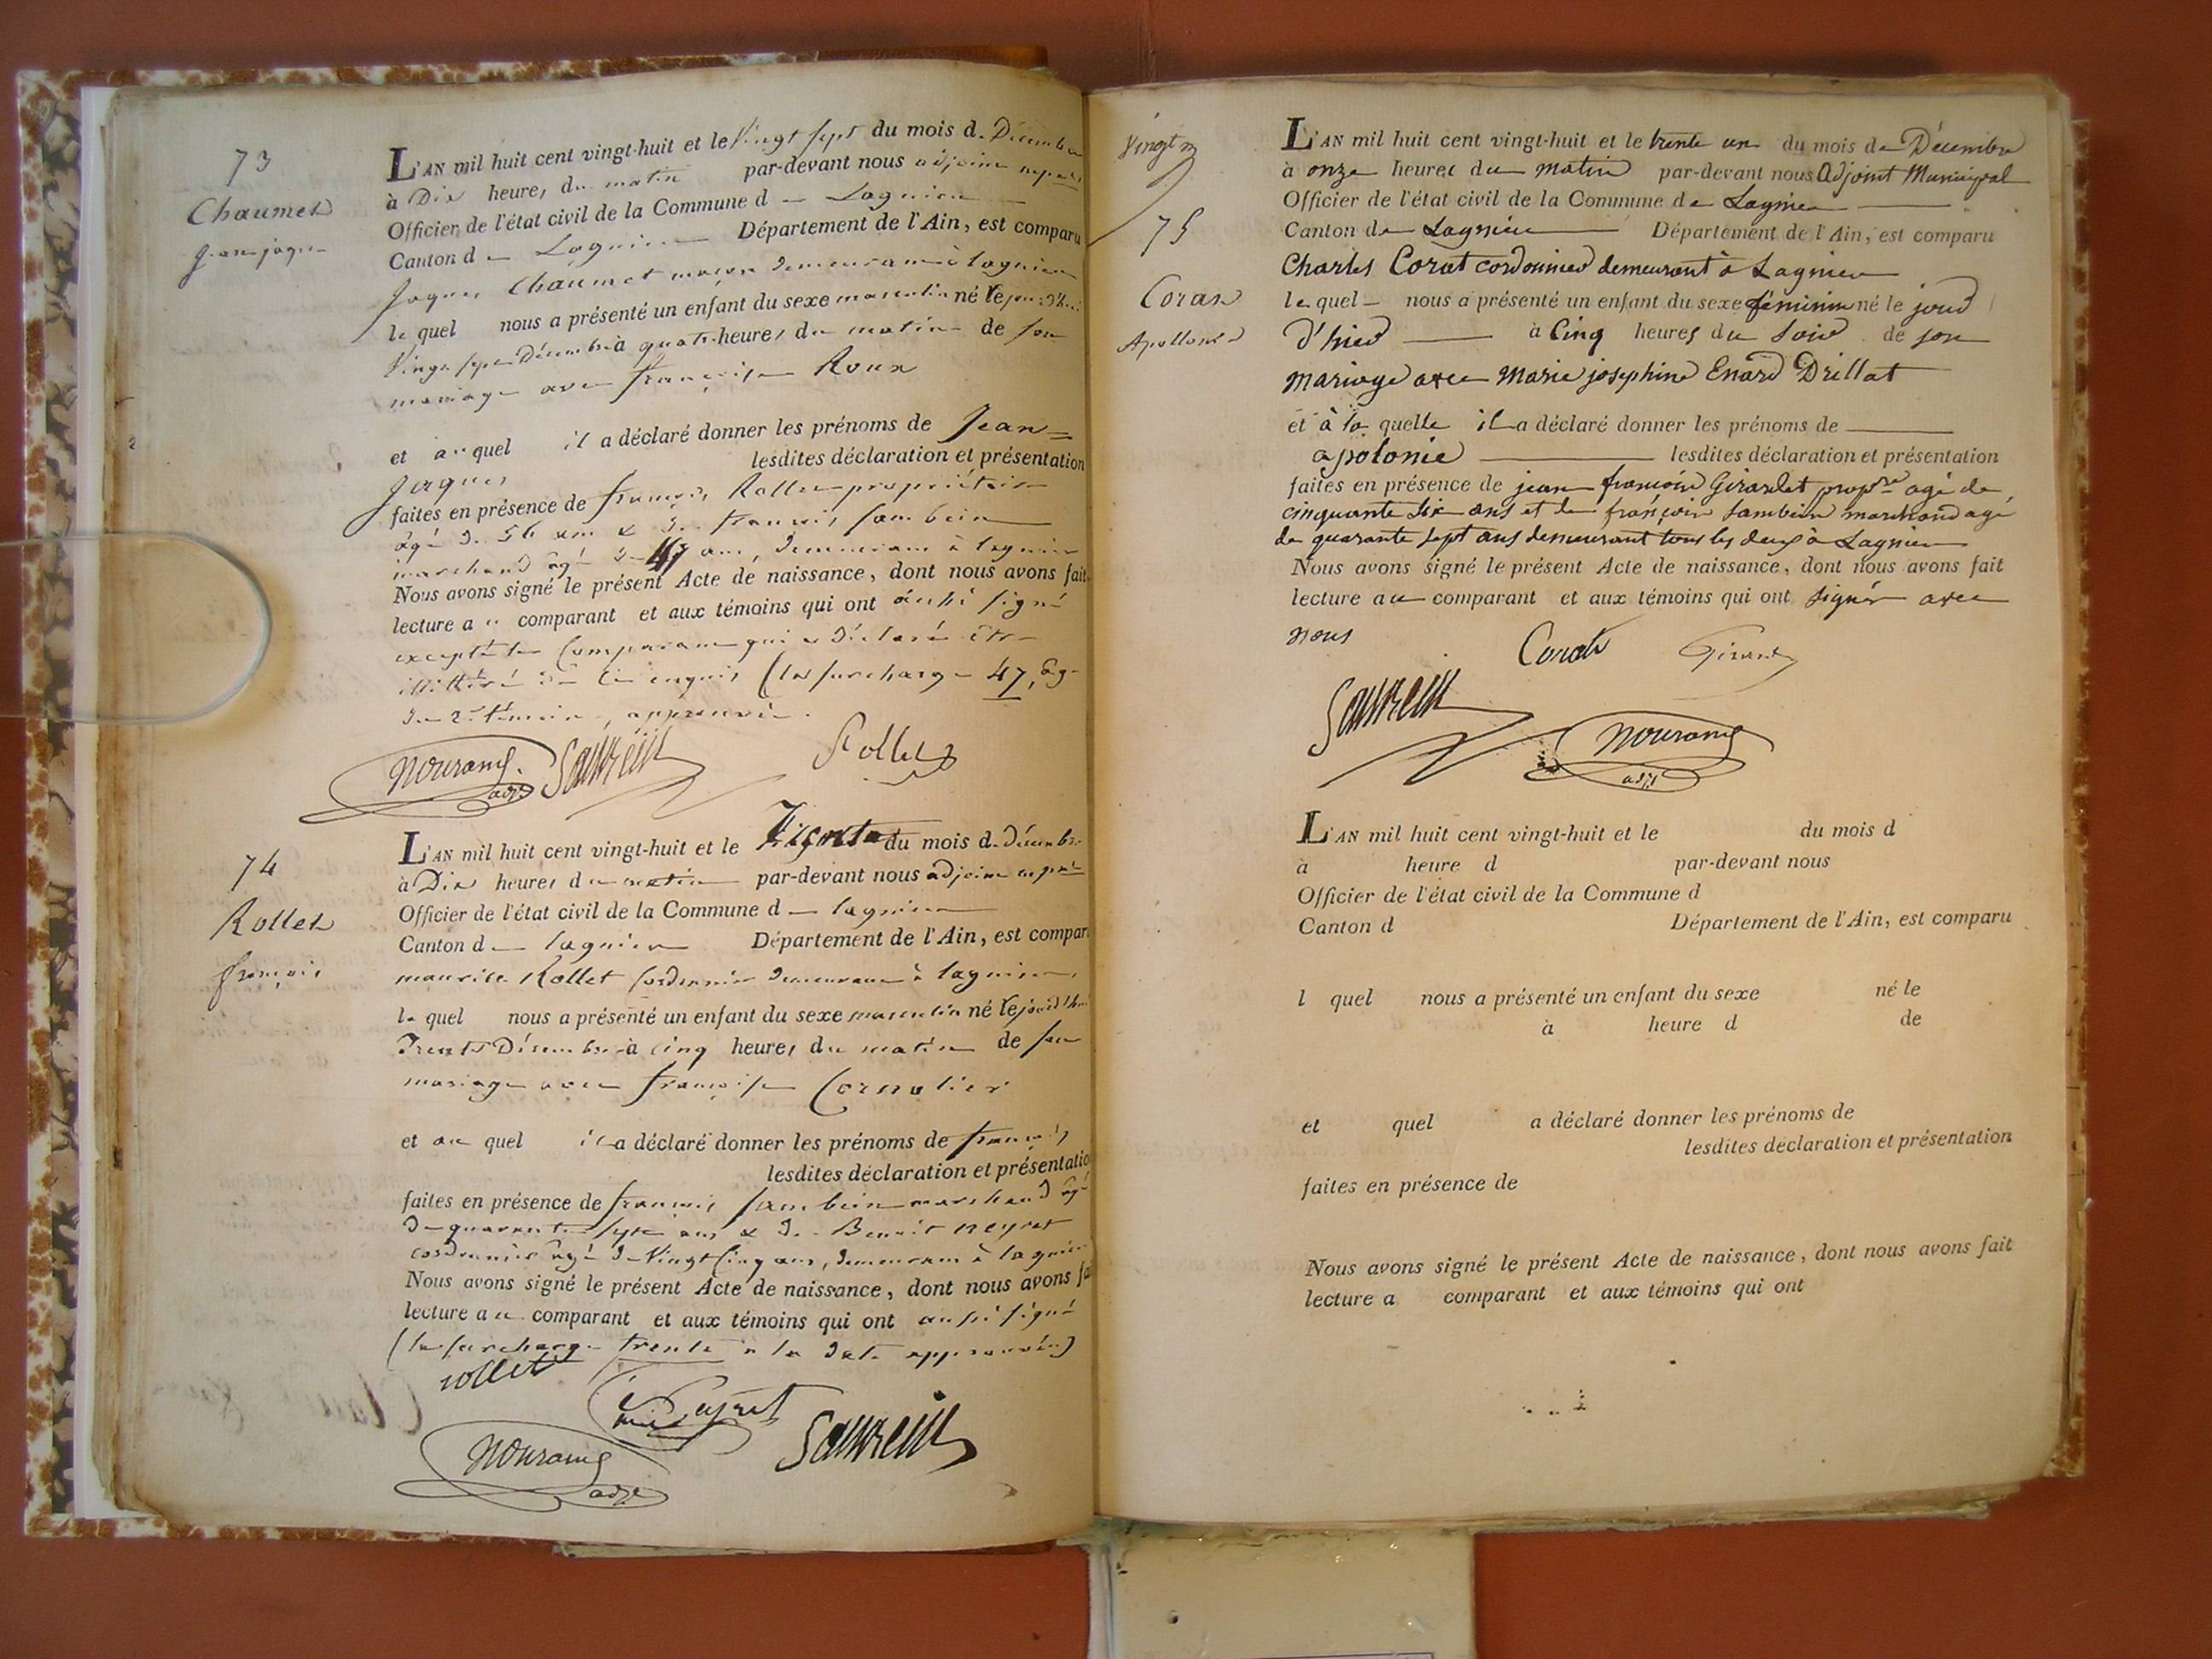 73
Chaumet
Jean jaques
L'AN mil huit cent vingt-huit et le Vingt sept du mois de Décembre
à Dix heures du matin par-devant nous adjoint
Officier de l'état civil de la Commune de Lagnieu
Canton de Lagnieu Département de l'Ain, est comparu
Jaques Chaumet maçon demeurant à lagnieu
le quel nous a présenté un enfant du sexe masculin né le jour d'hui
Vingt sept Décembre à quatre heures du matin de son
mariage avec françoise Roux
et au quel il a déclaré donner les prénoms de Jean =
Jaques lesdites déclaration et présentation
faites en présence de françois Rollet propriétaire
âgé de 56 ans & de françois
marchand âgé de 47 ans, demeurant à lagnieu
Nous avons signé le présent Acte de naissance, dont nous avons fait
lecture au comparant et aux témoins qui ont aussi signé
excepté le Comparant qui a déclaré être
illittéré de ce enquis (la surcharge 47, âge
du 2e témoin, approuvée.
Rollet
74
Rollet
françois
L'AN mil huit cent vingt-huit et le Trente du mois de décembre
à Dix heures du matin par-devant nous adjoint
Officier de l'état civil de la Commune de lagnieu
Canton de lagnieu Département de l'Ain, est comparu
maurice Rollet Cordonnier demeurant à lagnieu
le quel nous a présenté un enfant du sexe masculin né le jourd'hui
Trente Décembre à cinq heures du matin de son
mariage avec françoise Cornatier
et au quel il a déclaré donner les prénoms de françois
lesdites déclaration et présentation
faites en présence de françois marchand âgé
de quarante sept ans & de Benoit neyret
cordonnier âgé de Vingt Cinq ans, demeurant à lagnieu
Nous avons signé le présent Acte de naissance, dont nous avons fait
lecture au comparant et aux témoins qui ont aussi signé
(la surcharge trente à la date approuvée)
rollet
75
Coran
L'AN mil huit cent vingt-huit et le trente un du mois de Décembre
à onze heures du matin par-devant nous Adjoint Municipal
Officier de l'état civil de la Commune de Lagnieu
Canton de Lagnieu Département de l'Ain, est comparu
Charles Corat cordonnier demeurant à Lagnieu
le quel nous a présenté un enfant du sexe féminin né le jour
d'hier à Cinq heures du Soir de son
mariage avec Marie josephine Enard Drillat
et à la quelle il a déclaré donner les prénoms de
apolonie lesdites déclaration et présentation
faites en présence de jean françois Girardet propre agé de
cinquante Six ans et de françois marchand agé
de quarante Sept ans demeurant tous les deux à Lagnieu
Nous avons signé le présent Acte de naissance, dont nous avons fait
lecture au comparant et aux témoins qui ont Signés avec
nous
L'AN mil huit cent vingt-huit et le du mois d
à heure d par-devant nous
Officier de l'état civil de la Commune d
Canton d Département de l'Ain, est comparu
l quel nous a présenté un enfant du sexe né le
à heure d de
et quel a déclaré donner les prénoms de
lesdites déclaration et présentation
faites en présence de
Nous avons signé le présent Acte de naissance, dont nous avons fait
lecture a comparant et aux témoins qui ont